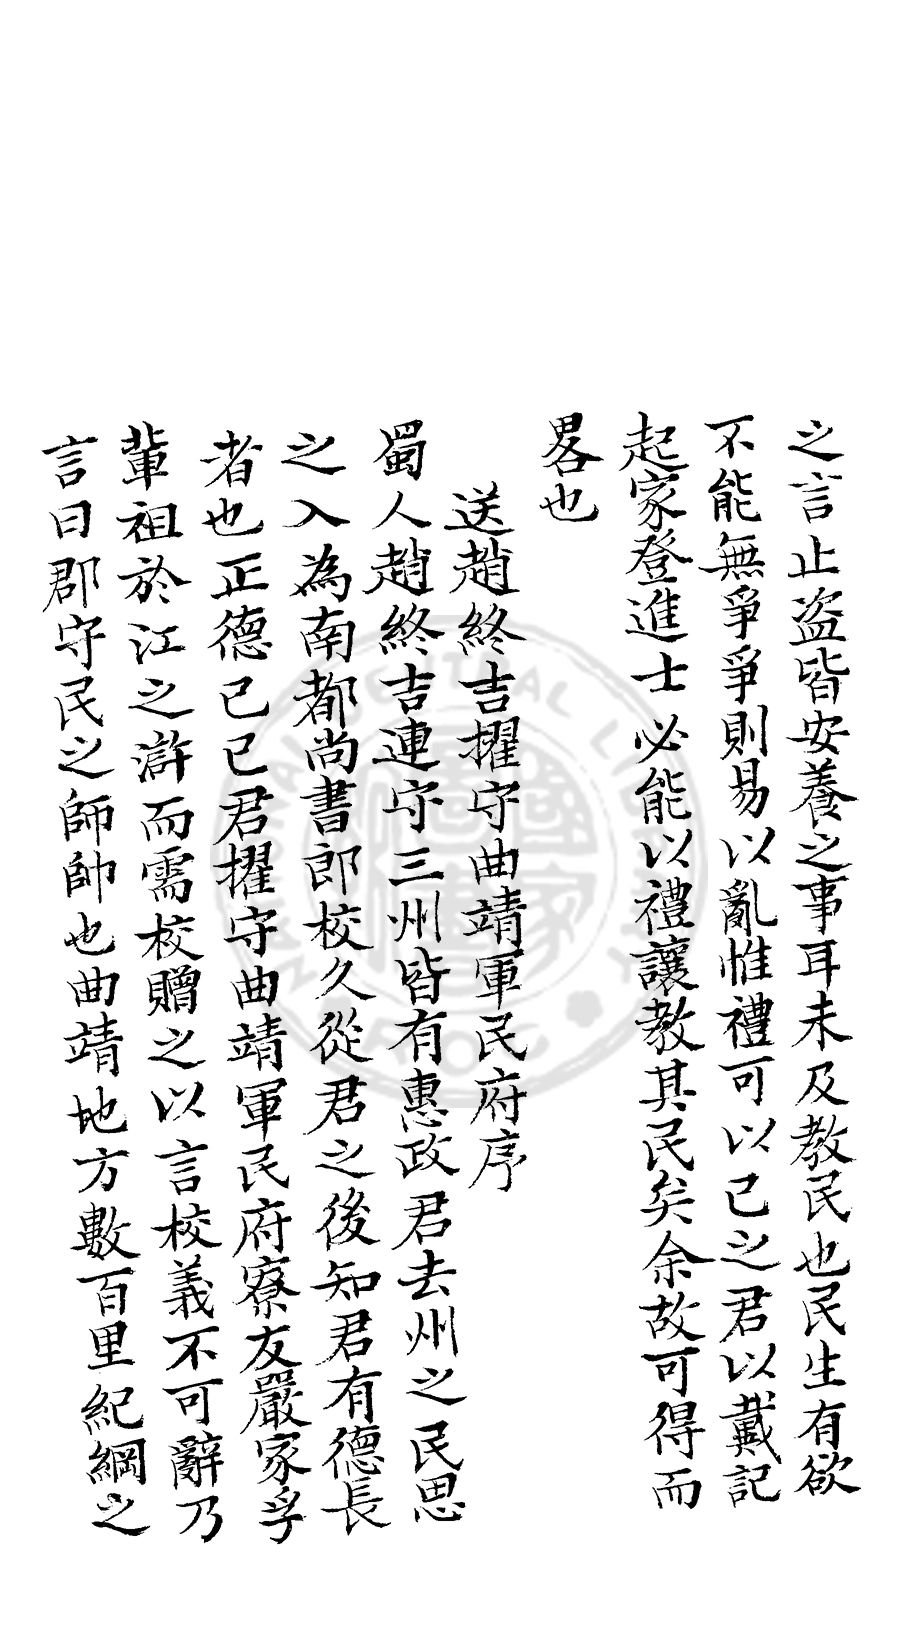 之言止盜皆安養之事耳未及教民也民生有欲
不能無爭爭則易以亂惟禮可以已之君以戴記
起家登進士必能以禮讓教其民矣余故可得而
畧也
送趙終吉擢守曲靖軍民府序
蜀人趙終吉連守三州皆有惠政君去州之民思
之入為南都尚書郎校久從君之後知君有德長
者也正德己巳君擢守曲靖軍民府寮友嚴家孚
輩祖於江之滸而需校贈之以言校義不可辭乃
言曰郡守民之師帥也曲靖地方數百里紀綱之